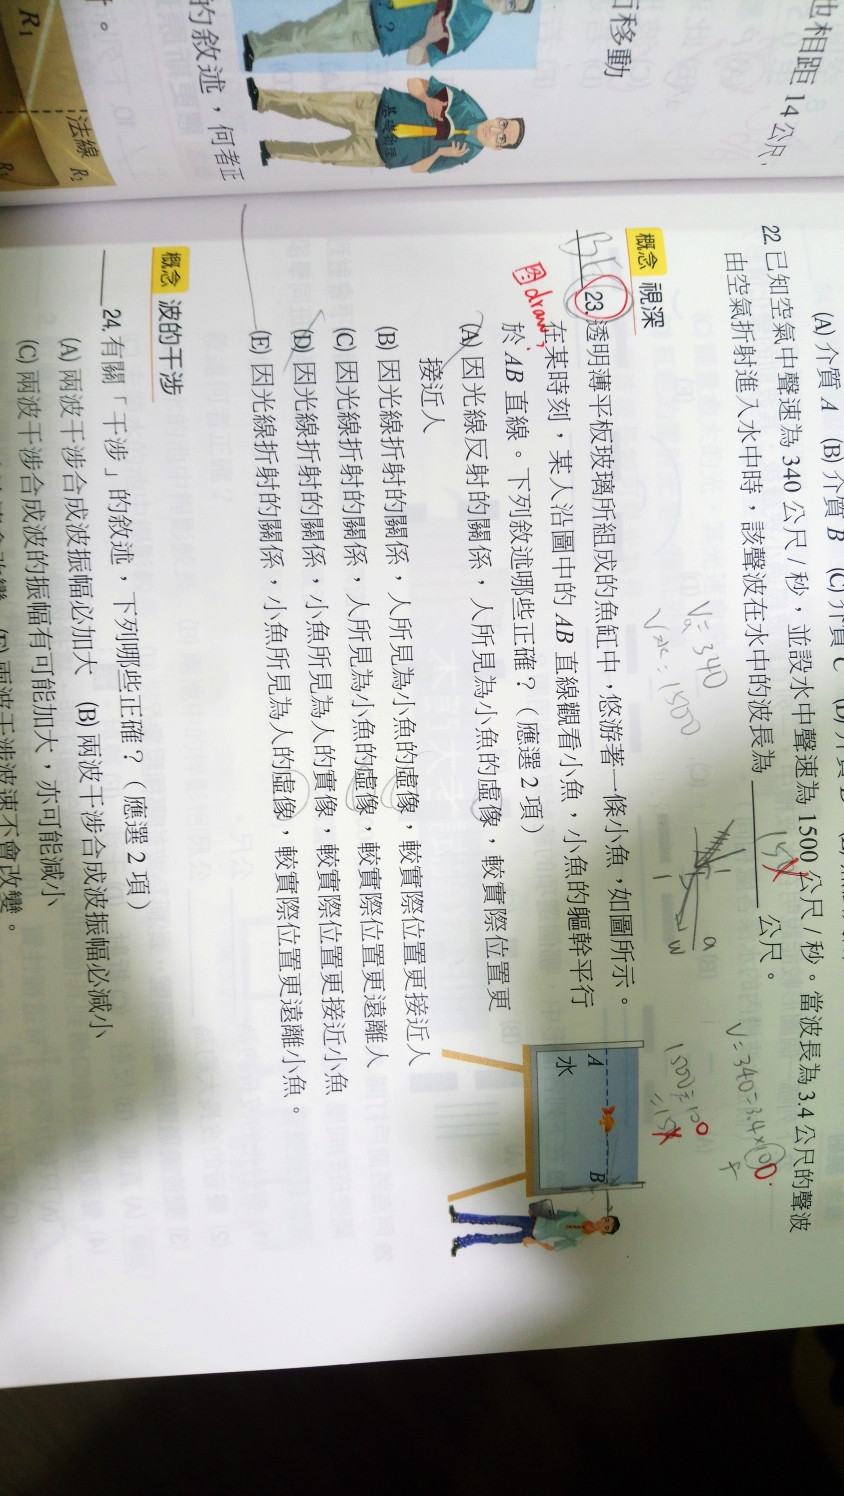 也相距 14 公尺，
向移動
的敘述，何者正
法線
R₁
R₂
R₃
基礎物理
(A) 介質 A (B) 介質 B (C) 介質 C
22. 已知空氣中聲速為 340 公尺/秒，並設水中聲速為 1500 公尺/秒。當波長為 3.4 公尺的聲波
由空氣折射進入水中時，該聲波在水中的波長為 ______ 公尺。
15
Va = 340
V水 = 1500
a
w
V = 340 = 3.4 × 100
概念 視深
BE 23. 透明薄平板玻璃所組成的魚缸中，悠游著一條小魚，如圖所示。
圖draw;
在某時刻，某人沿圖中的 AB 直線觀看小魚，小魚的軀幹平行
於 AB 直線。下列敘述哪些正確？（應選 2 項）
(A) 因光線反射的關係，人所見為小魚的虛像，較實際位置更
接近人
(B) 因光線折射的關係，人所見為小魚的虛像，較實際位置更接近人
(C) 因光線折射的關係，人所見為小魚的虛像，較實際位置更遠離人
(D) 因光線折射的關係，小魚所見為人的實像，較實際位置更接近小魚
(E) 因光線折射的關係，小魚所見為人的虛像，較實際位置更遠離小魚。
A
B
水
概念 波的干涉
24. 有關「干涉」的敘述，下列哪些正確？（應選 2 項）
(A) 兩波干涉合成波振幅必加大 (B) 兩波干涉合成波振幅必減小
(C) 兩波干涉合成波的振幅有可能加大，亦可能減小
(E) 兩波干涉波速不會改變。